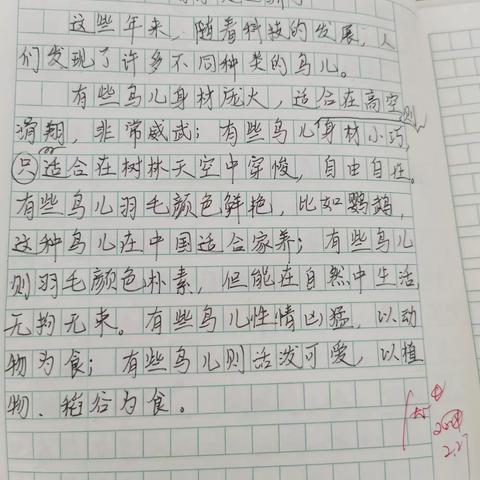 这些年来，随着科技的发展，人
们发现了许多不同种类的鸟儿。
有些鸟儿身材庞大，适合在高空
滑翔，非常威武；有些鸟儿身材小巧，则
只适合在树林天空中穿梭，自由自在。
有些鸟儿羽毛颜色鲜艳，比如鹦鹉，
这种鸟儿在中国适合家养；有些鸟儿
则羽毛颜色朴素，但能在自然中生活，
无拘无束。有些鸟儿性情凶猛，以动
物为食；有些鸟儿则活泼可爱，以植
物、稻谷为食。